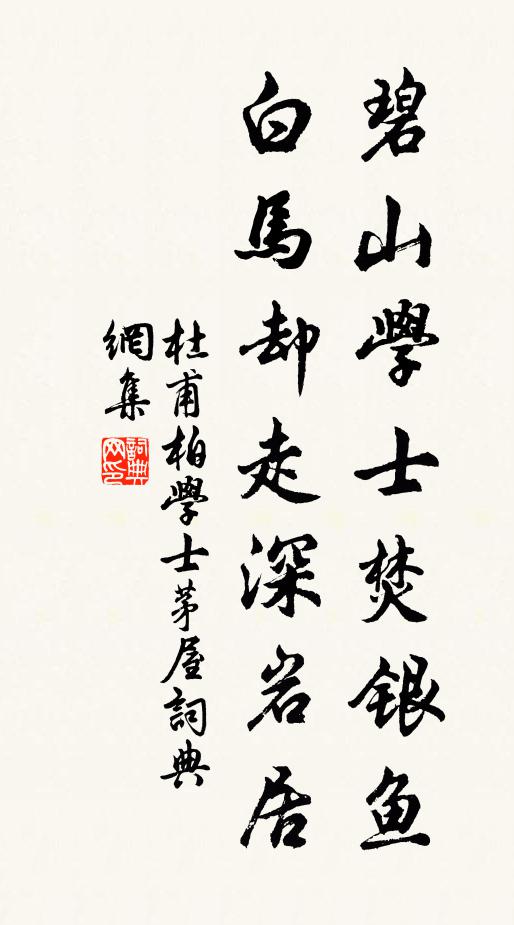 碧山學士焚銀魚
白馬却走深岩居
杜甫柏學士茅屋詞典
網集
詞典
网印